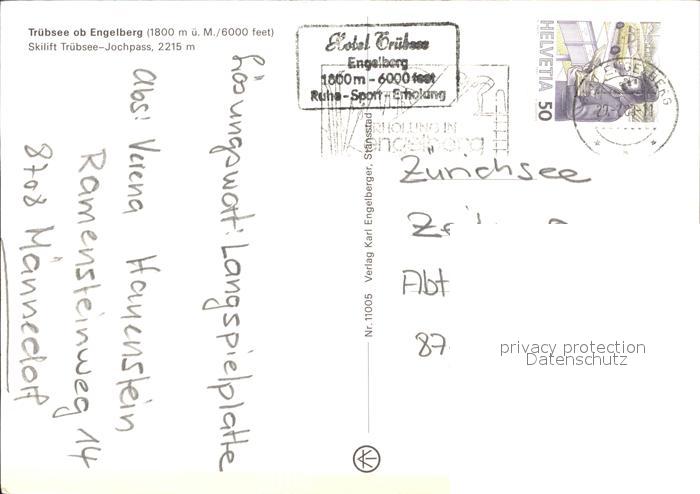 Trübsee ob Engelberg (1800 m ü. M./6000 feet)
Skilift Trübsee–Jochpass, 2215 m
Lösungswort: Langspielplatte
Abs: Verena Hauenstein
Ramensteinweg 14
8708 Männedorf
Nr. 11005 Verlag Karl Engelberger, Stansstad
Hotel Trübsee
Engelberg
1800 m - 6000 feet
Ruhe - Sport - Erholung
ERHOLUNG IN
engelberg
HELVETIA 50
ENGELBERG
Zürichsee
Abt
87
privacy protection
Datenschutz